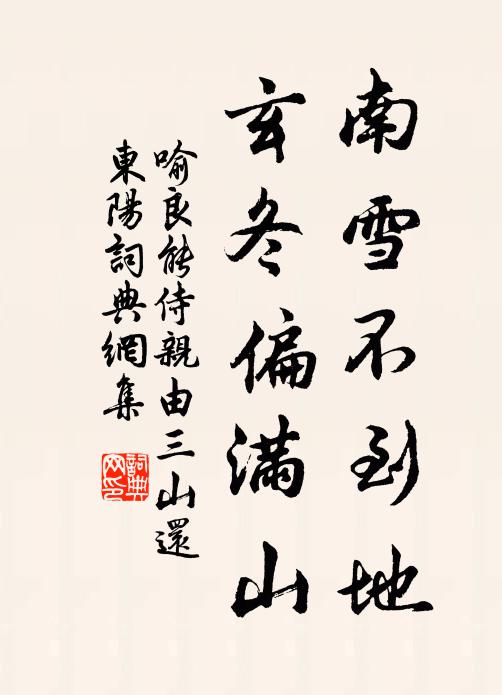 南雪不到地
玄冬偏滿山
喻良能侍親由三山還
東陽詞典網集
詞典網印